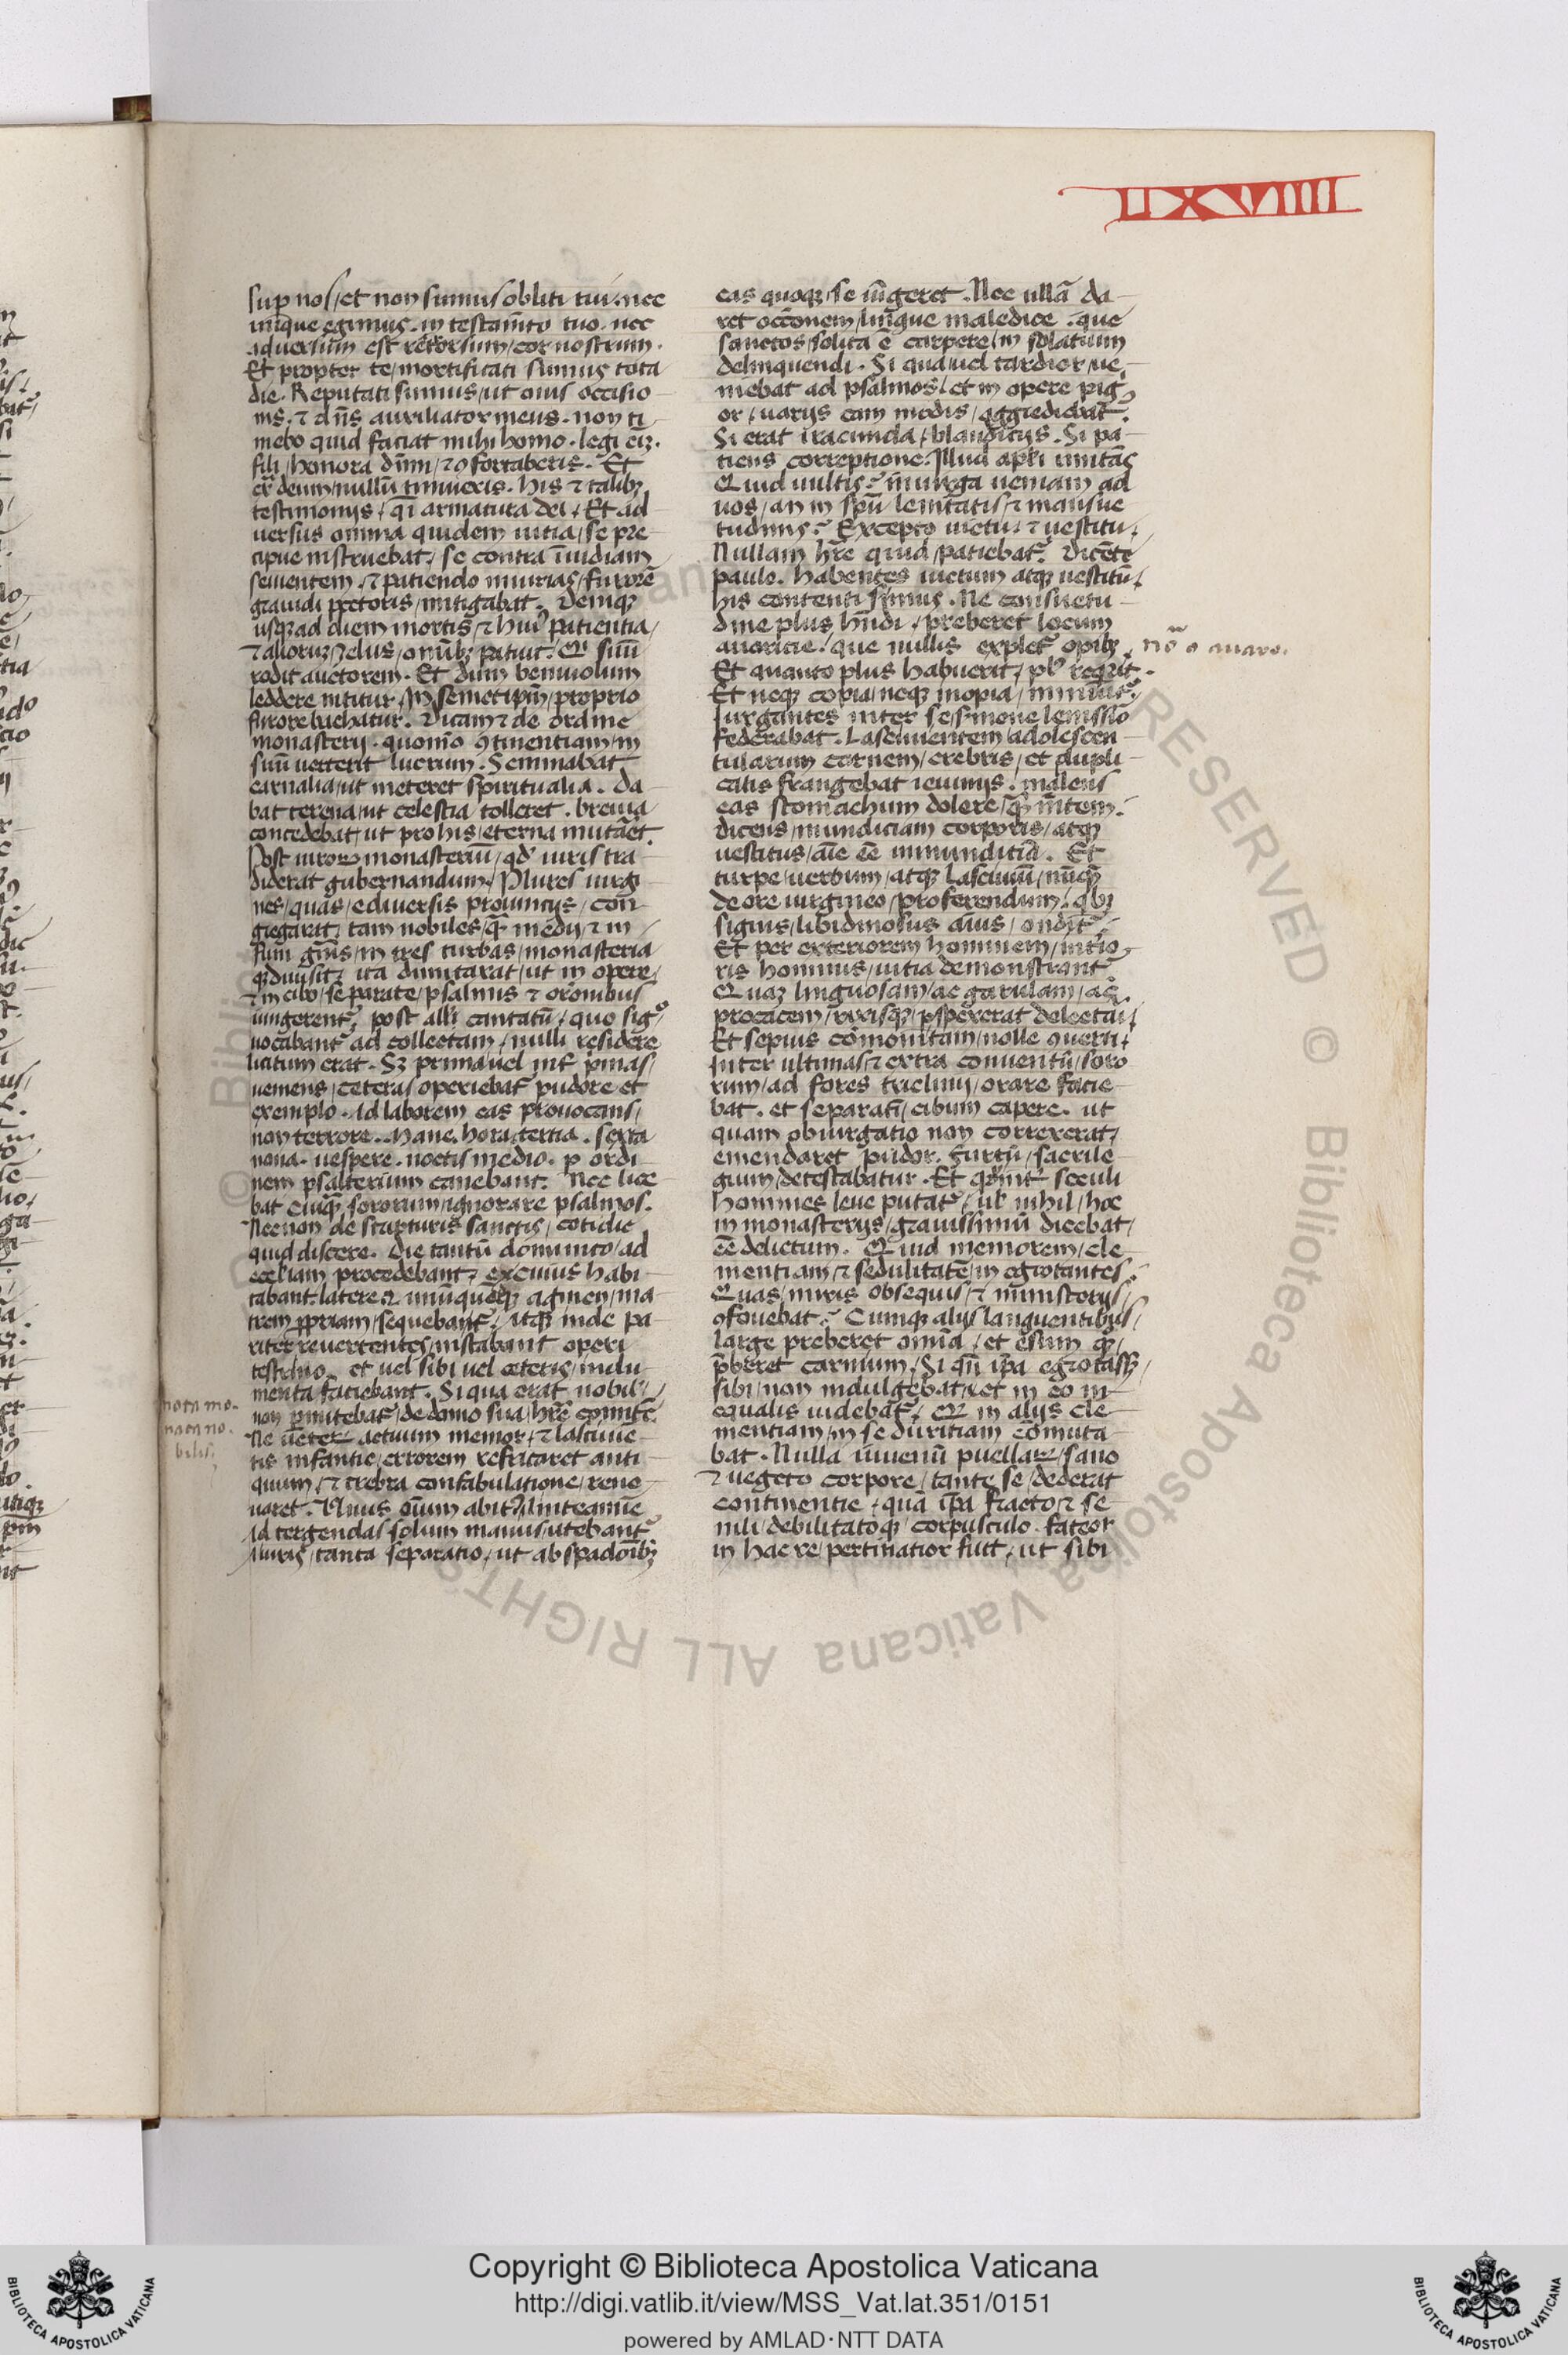 LXVIIII
sup nos / et non sumus obliti tui. nec
inique egimus. in testam̄to tuo. nec
aduersum est retrorsum / cor nostrum.
Et propter te / mortificati sumus tota
die. Reputati sumus / ut ouis occisio
nis. ⁊ dn̄s auxiliator meus. non ti
mebo quid faciat mihi homo. legi eīz.
fili / honora dn̄m / ⁊ ꝯfortaberis. Et
deum / nullū timueris. his ⁊ talibꝫ
testimonijs / armatura dei / Et ad
uersus omnia quidem uitia / se pre
cipue instruebat / se contra īuidiam
seuientem. ⁊ patiendo iniurias / furorē
grauidi pectoris / mitigabat. Deniqꝫ
usqꝫ ad diem mortis / ⁊ huiꝰ patientia /
⁊ alioruꝫ zelus / omībꝫ patuit. suū
rodit auctorem. Et dum benuiolum
leddere nititur / In semetip̄m / proprio
furore bachatur. Dicam ⁊ de ordine
monasterij. quomō ꝯtinentiam / in
suū uerterit lucrum. Seminabat
carnalia / ut meteret spiritualia. da
bat terrena / ut celestia tolleret. breuia
concedebat / ut pro his / eterna mutāet.
Post uiroꝝ monasteriū / qd' uiris tra
diderat gubernandum. Plures uirgi
nes / quas / e diuersis prouincijs / con
gregarat / tam nobiles / q̄ medij / ⁊ in
fimi gn̄is / in tres turbas / monasteria
qꝫ diuisit / ita dumtaxat / ut in opere /
⁊ in cibo / separate / psalmis ⁊ orōnibus
iungerent̄. post all'i cantatū / quo sigº
uocabant̄ ad collectam / nulli residere
licitum erat. Sꝫ prima uel int̄ p̄mas /
ueniens / ceteras operiebat̄ pudore et
exemplo. Ad laborem eas prouocans /
non terrore. Mane. hora tertia. sexta
nona. uespere. noctis medio. p ordi
nem psalterium canebant. Nec lice
bat cuiq̄ sororum / ignorare psalmos.
Nec non de scripturis sanctis / cotidie
quid discere. Die tantū dominico / ad
eccl'iam procedebant / ex cuius habi
tabant latere ⁊ unūquēqꝫ agmen / ma
trem ꝓpriam / sequebant̄. Atqꝫ inde pa
riter reuertentes / instabant operi
testi.no. et uel sibi uel ceteris / indu
menta faciebant. Si qua erat nobil'
non p̄mitebat̄ / de domo sua / hr̄e comitē.
Ne ueter actuum memor / ⁊ lasciuiē
tis infantie / errorem refricaret anti
quum / ⁊ crebra confabulatione / reno
uaret. Vnus om̄um abitꝰ / linteamīe
Ad tergendas solum manus / utebant̄
A uiris / tanta separatio / ut ab spadoībꝫ
nota mo.
nacā no.
bilis.
eas quoqꝫ se iūgeret. Nec ullā da
ret occ̄onem / linīque maledice. que
sanctos / solita ē carpere / in solatium
delinquendi. Si qua / uel tardior ue
niebat ad psalmos / et in opere pig
or / uarijs eam modis / aggrediebat̄.
Si erat iracunda / blandicijs. Si pa
tiens correptione. Illud apl'i imitās
Quid uultis? in uirga ueniam ad
uos / an in spū lenitatis / ⁊ mansue
tudinis? Excepto uictu / ⁊ uestitu /
Nullam hr̄e quid / patiebat̄. Dicēte
paulo. habentes uictum atqꝫ uestitū /
his contenti simus. Ne consuetu
dine plus hn̄di / preberet locum
auaricie / que nullis explet̄ opibꝫ.
nō ꝯ auaro.
Et quanto plus habuerit / pl' reqrit.
Et neqꝫ copia / neqꝫ inopia / minuit̄.
Jurgantes inter se / s̄mone lenissīo
federabat. Lasciuientem adolescen
tularum carnem / crebris / et dupli
catis frangebat ieiunijs. malens
eas stomachum dolere / q̄ m̄tem.
dicens / mundiciam corporis / atqꝫ
uestitus / aīe eē inmunditiā. Et
turpe uerbum / atqꝫ lasciuum / nūq̄
de ore uirgineo / proferendum. qbꝫ
signis / libidinosus aīus / ondit̄.
Et per exteriorem hominem / int'io
ris hominis / uitia demonstrant̄.
Quaꝫ linguosam / ac garulam / ac
procacem / rixisqꝫ / pspexerat delectari
Et sepius cōmonitam / nolle ꝯuerti /
Inter ultimas / ⁊ extra conuentū / soro
rum / ad fores triclinij / orare facie
bat. et separatī / cibum capere. ut
quam obiurgatio non correxerat /
emendaret pudor. furtū / sacrile
gium / detestabatur. Et qd int̄ seculi
homines leue putat̄ / ul' nihil / hoc
in monasterijs / grauissimū dicebat /
eē delictum. Quid memorem / cle
mentiam / ⁊ sedulitatē / in egrotantes.
Quas / miris obsequijs / ⁊ ministerijs /
ꝯfouebat? Cumqꝫ alijs languentibus /
large preberet omīa / et esum qꝫ /
p̄beret carnium. Si qn̄ ip̄a egrotass /
sibi / non indulgebat / et in eo in
equalis uidebat̄ / in alijs cle
mentiam / in se duritiam cōmuta
bat. Nulla iuuenū puellaꝝ / sano
⁊ uegeto corpore / tante se / dederat
continentie / quā ip̄a fracto / ⁊ se
nili / debilitatoqꝫ corpusculo. fateor
in hac re / pertinatior fuit / ut sibi
Copyright © Biblioteca Apostolica Vaticana
http://digi.vatlib.it/view/MSS_Vat.lat.351/0151
powered by AMLAD·NTT DATA
BIBLIOTECA APOSTOLICA VATICANA
BIBLIOTECA APOSTOLICA VATICANA
© Biblioteca Apostolica Vaticana ALL RIGHTS RESERVED